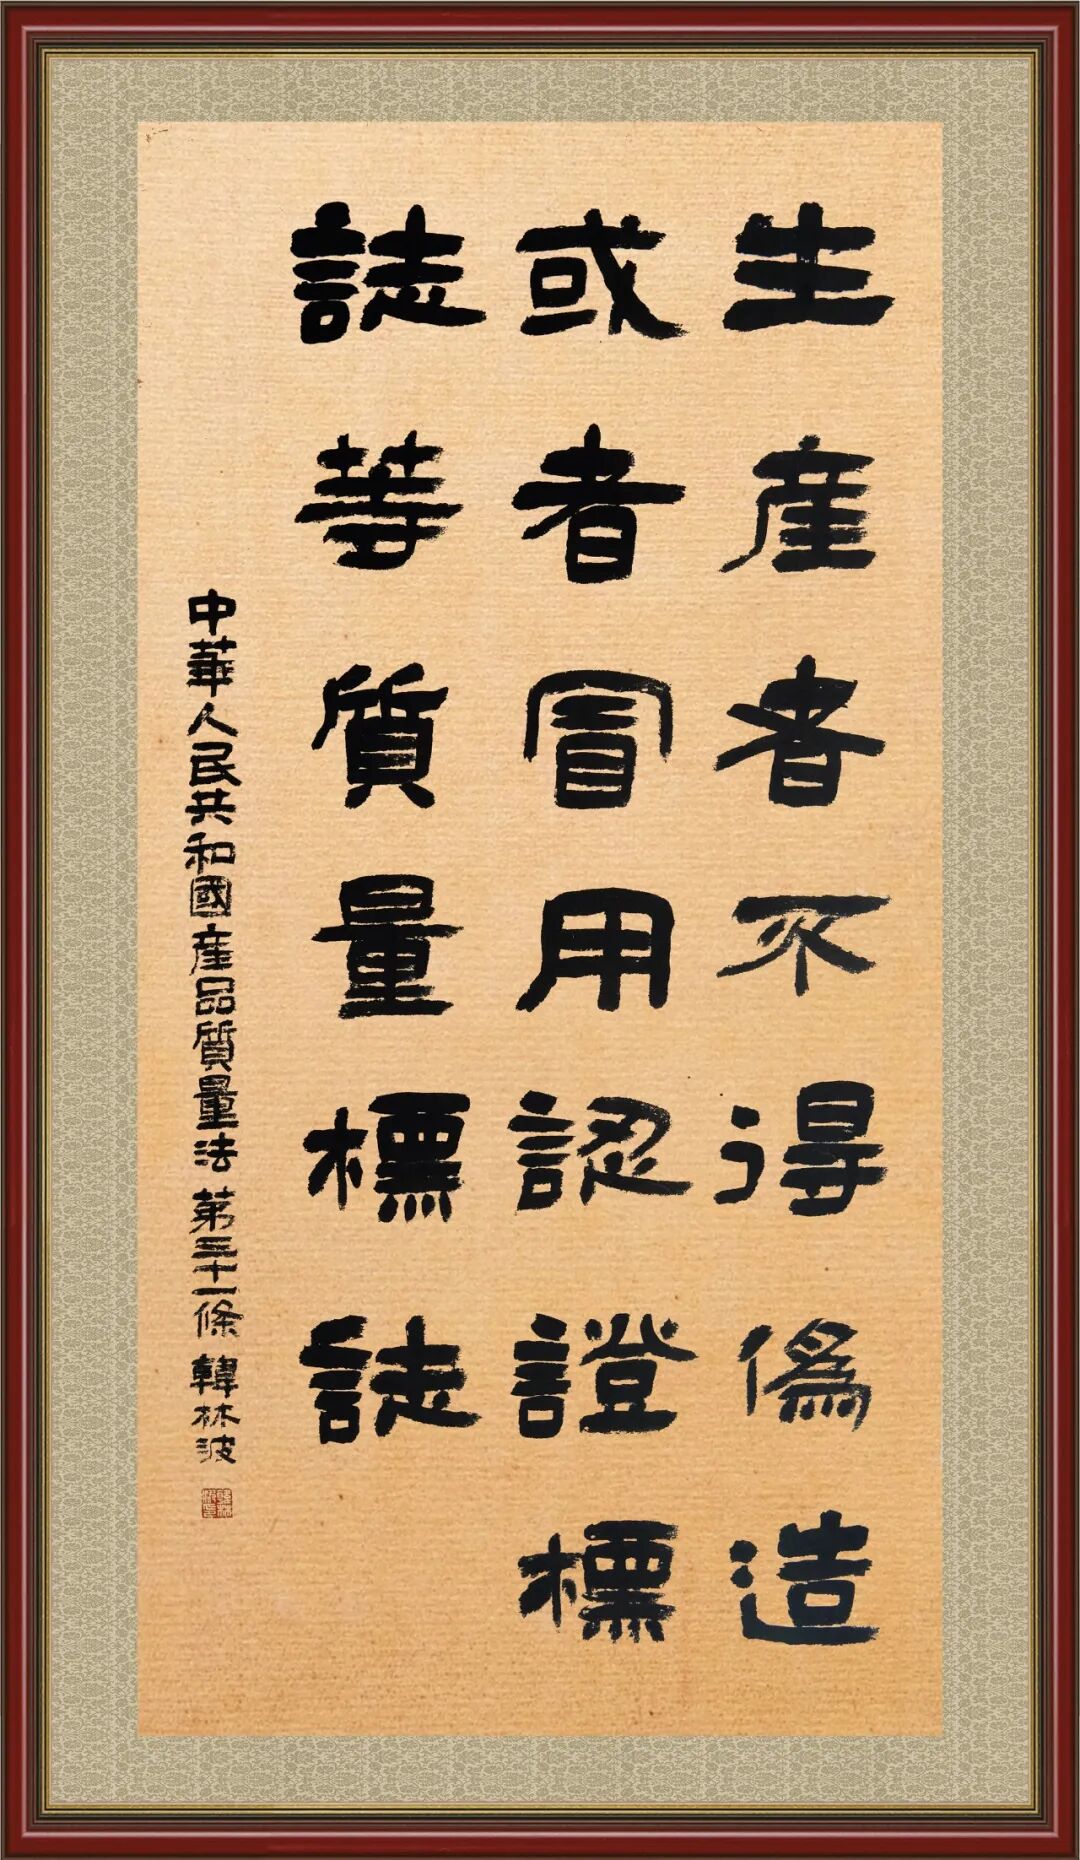 生產者不得偽造
或者冒用認證標
誌等質量標誌
中華人民共和國產品質量法 第三十一條 韓林波